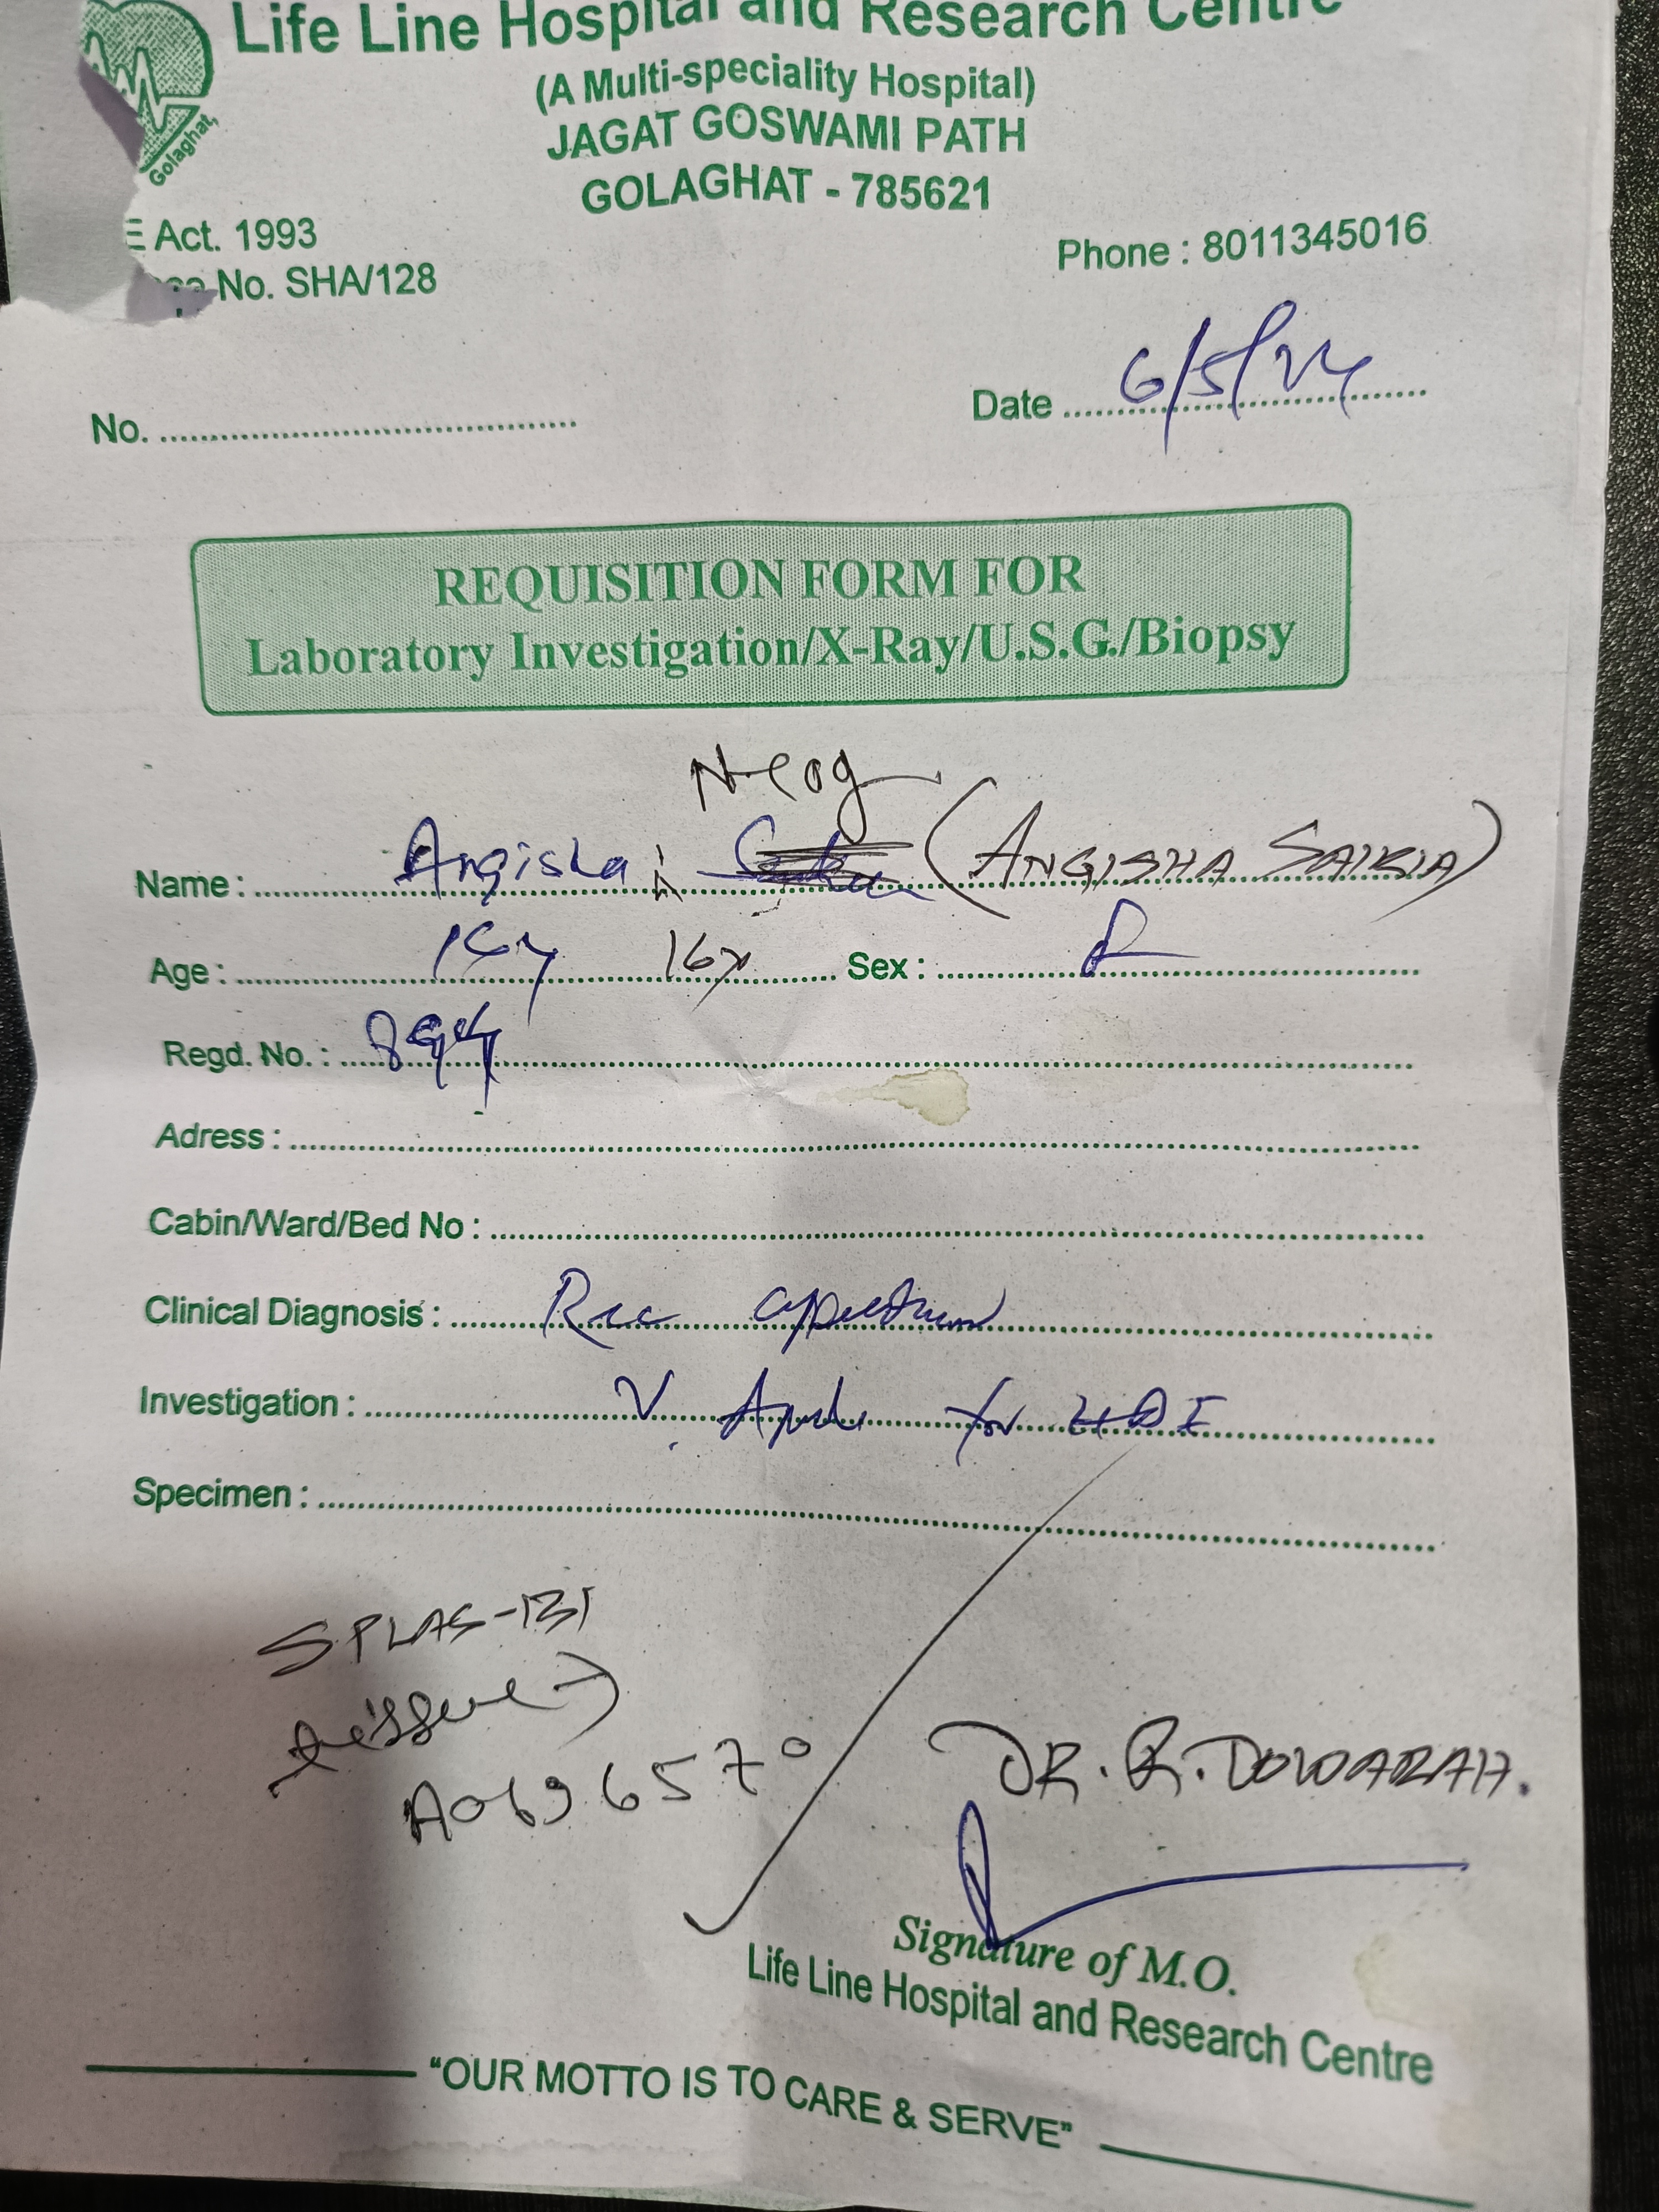 Life Line Hospital and Research Centre
(A Multi-speciality Hospital)
JAGAT GOSWAMI PATH
GOLAGHAT - 785621
Golaghat,
E Act. 1993
No. SHA/128
Phone : 8011345016
No.
Date 6/5/24
REQUISITION FORM FOR
Laboratory Investigation/X-Ray/U.S.G./Biopsy
Neog
Name : Angisha (ANGISHA SAIKIA)
Age : 16y Sex :
Regd. No. :
Adress :
Cabin/Ward/Bed No :
Clinical Diagnosis :
Investigation : V. for
Specimen :
tissue →
A0696570
DR. R. DOWARAH.
Signature of M.O.
Life Line Hospital and Research Centre
“OUR MOTTO IS TO CARE & SERVE”